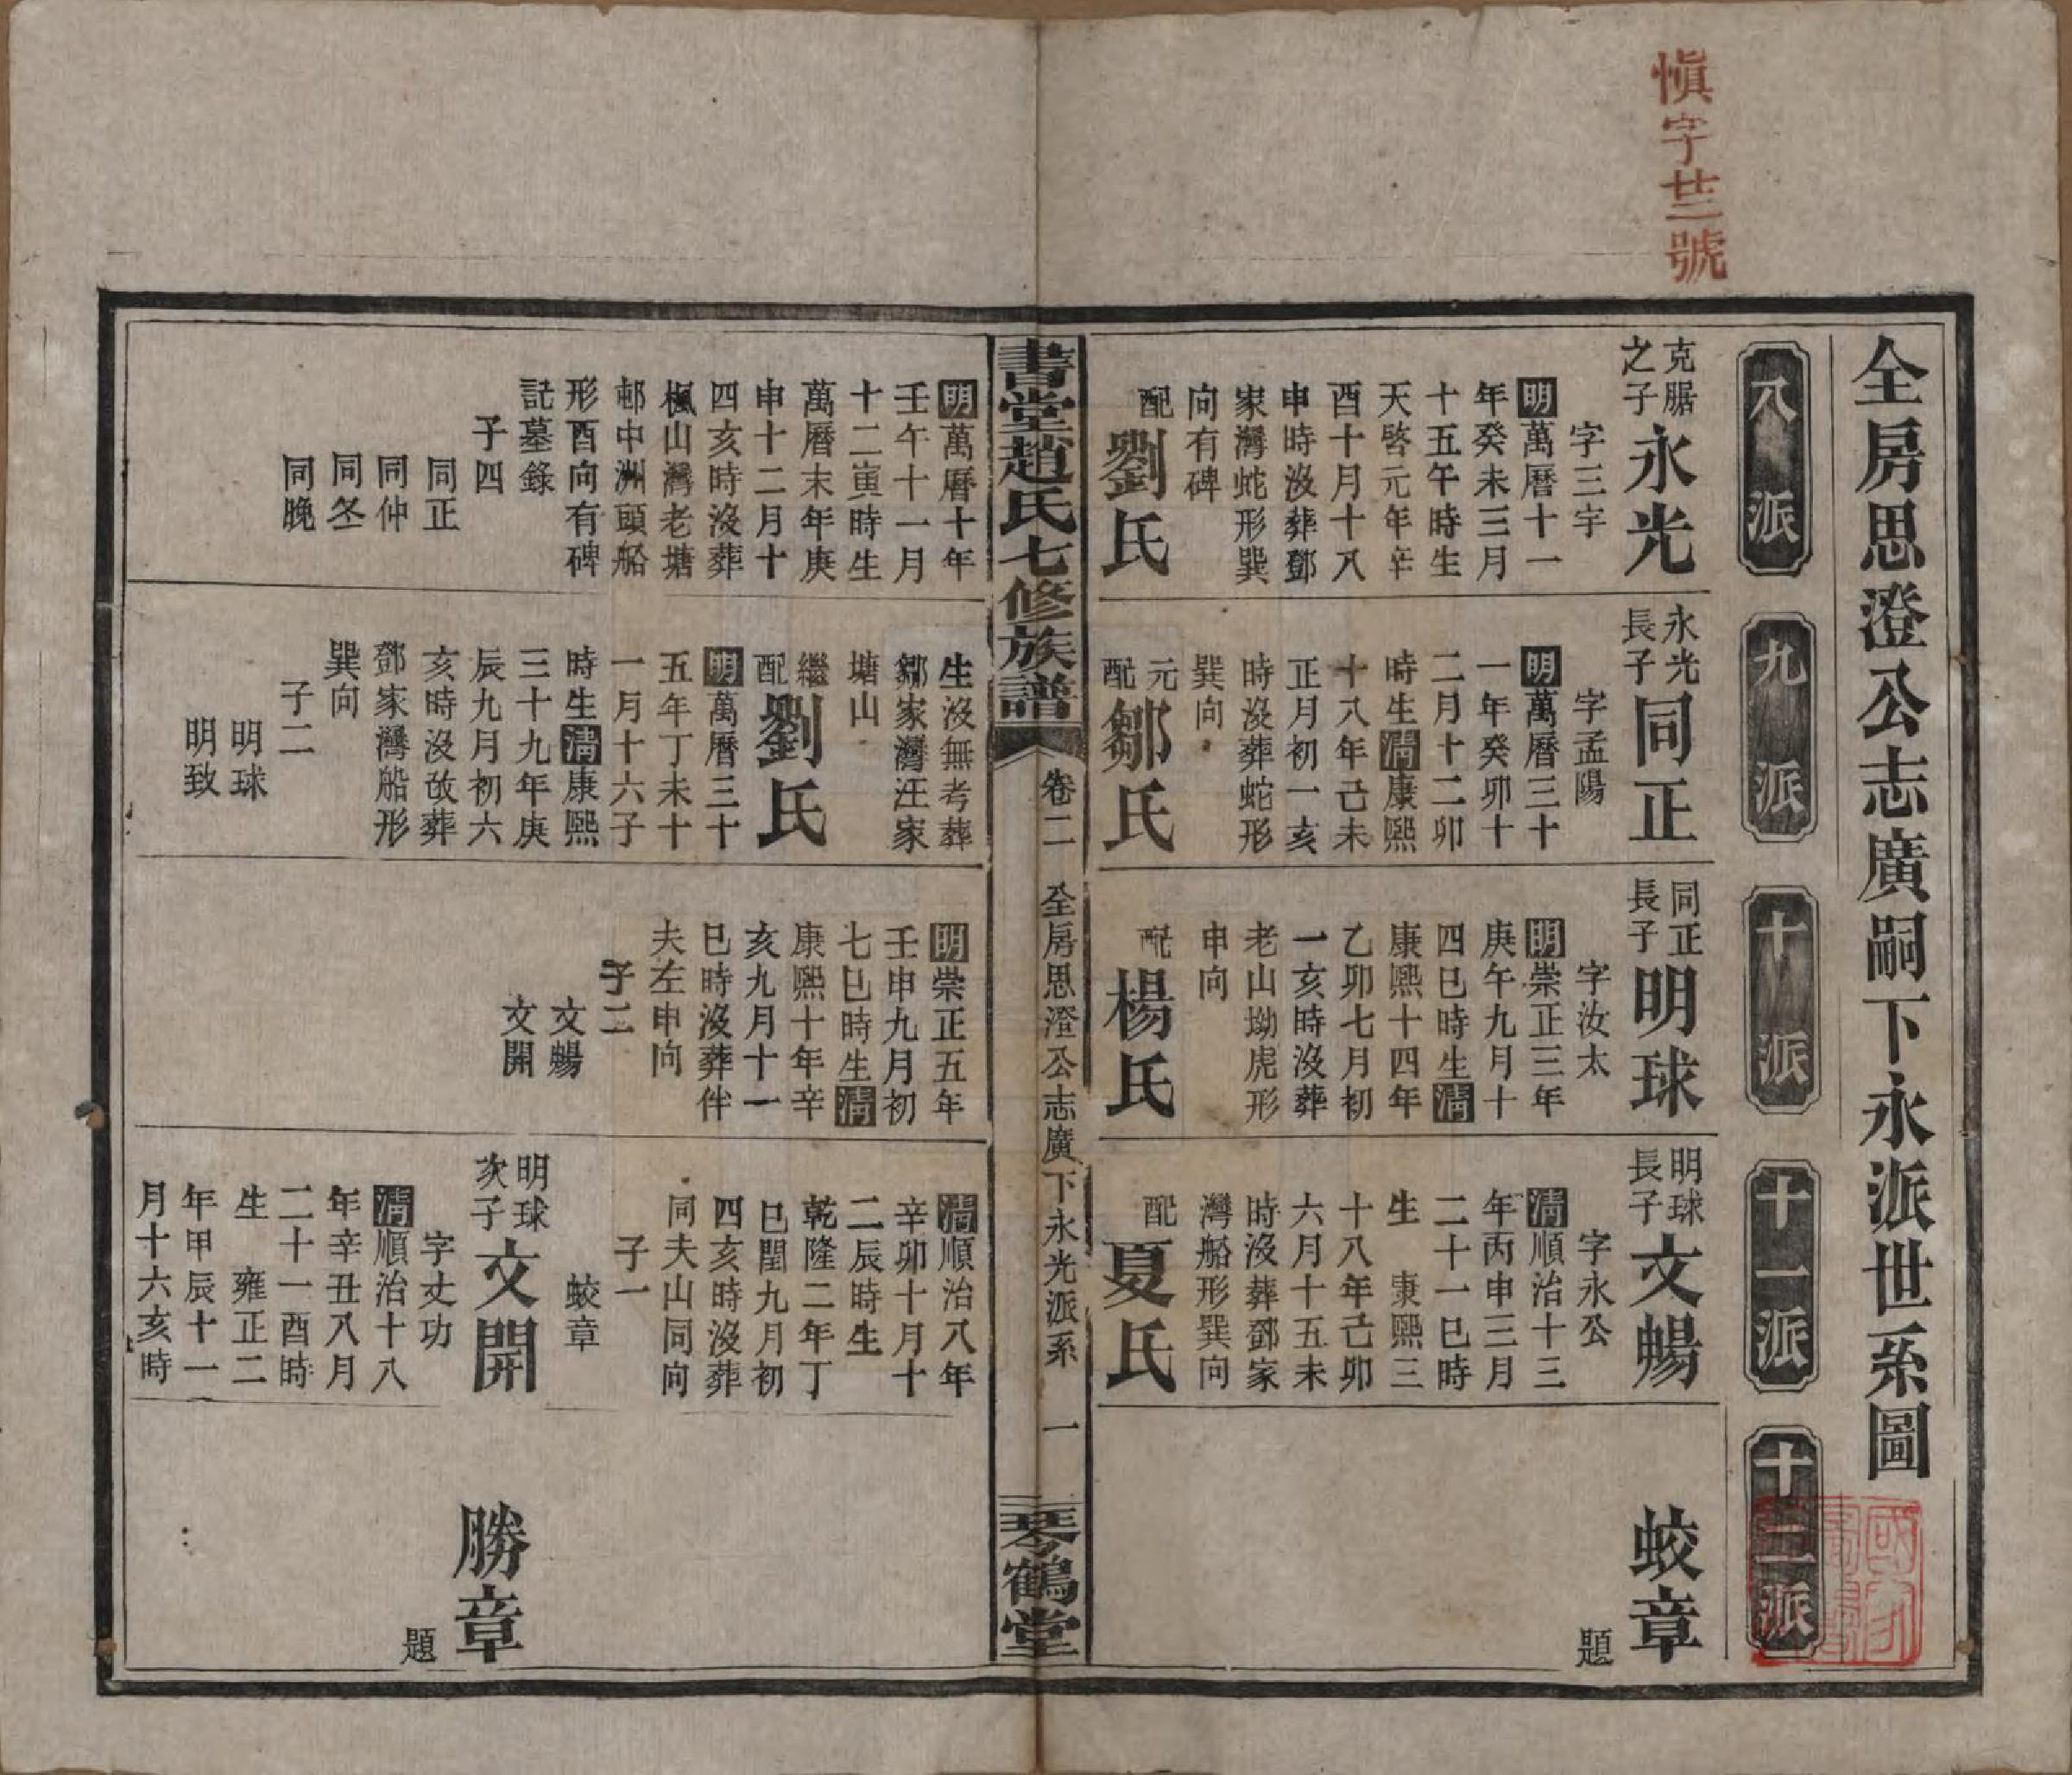 慎字廿三號
全房思澄公志廣嗣下永派世系圖
八派
九派
十派
十一派
十二派
克腒
之子
永光
字三字
明萬曆十一
年癸未三月
十五午時生
天啓元年辛
酉十月十八
申時沒葬鄧
家灣蛇形巽
向有碑
配
劉氏
明萬曆十年
壬午十一月
十二寅時生
萬曆末年庚
申十二月十
四亥時沒葬
楓山灣老塘
邨中洲頭船
形酉向有碑
記墓錄
子四
同正
同仲
同冬
同晚
永光
長子
同正
字孟陽
明萬曆三十
一年癸卯十
二月十二卯
時生清康熙
十八年己未
正月初一亥
時沒葬蛇形
巽向
元
配
鄒氏
生沒無考葬
鄒家灣汪家
塘山
繼
配
劉氏
明萬曆三十
五年丁未十
一月十六子
時生清康熙
三十九年庚
辰九月初六
亥時沒改葬
鄧家灣船形
巽向
子二
明球
明致
同正
長子
明球
字汝太
明崇正三年
庚午九月十
四巳時生清
康熙十四年
乙卯七月初
一亥時沒葬
老山坳虎形
申向
配
楊氏
明崇正五年
壬申九月初
七巳時生清
康熙十年辛
亥九月十一
巳時沒葬伴
夫左申向
子二
文暢
文開
明球
長子
文暢
字永公
清順治十三
年丙申三月
二十一巳時
生 康熙三
十八年己卯
六月十五未
時沒葬鄧家
灣船形巽向
配
夏氏
清順治八年
辛卯十月十
二辰時生
乾隆二年丁
巳閏九月初
四亥時沒葬
同夫山同向
子一
蛟章
明球
次子
文開
字丈功
清順治十八
年辛丑八月
二十一酉時
生 雍正二
年甲辰十一
月十六亥時
蛟章
題
勝章
題
書堂趙氏七修族譜
卷二
全房思澄公志廣下永光派系
一
琴鶴堂